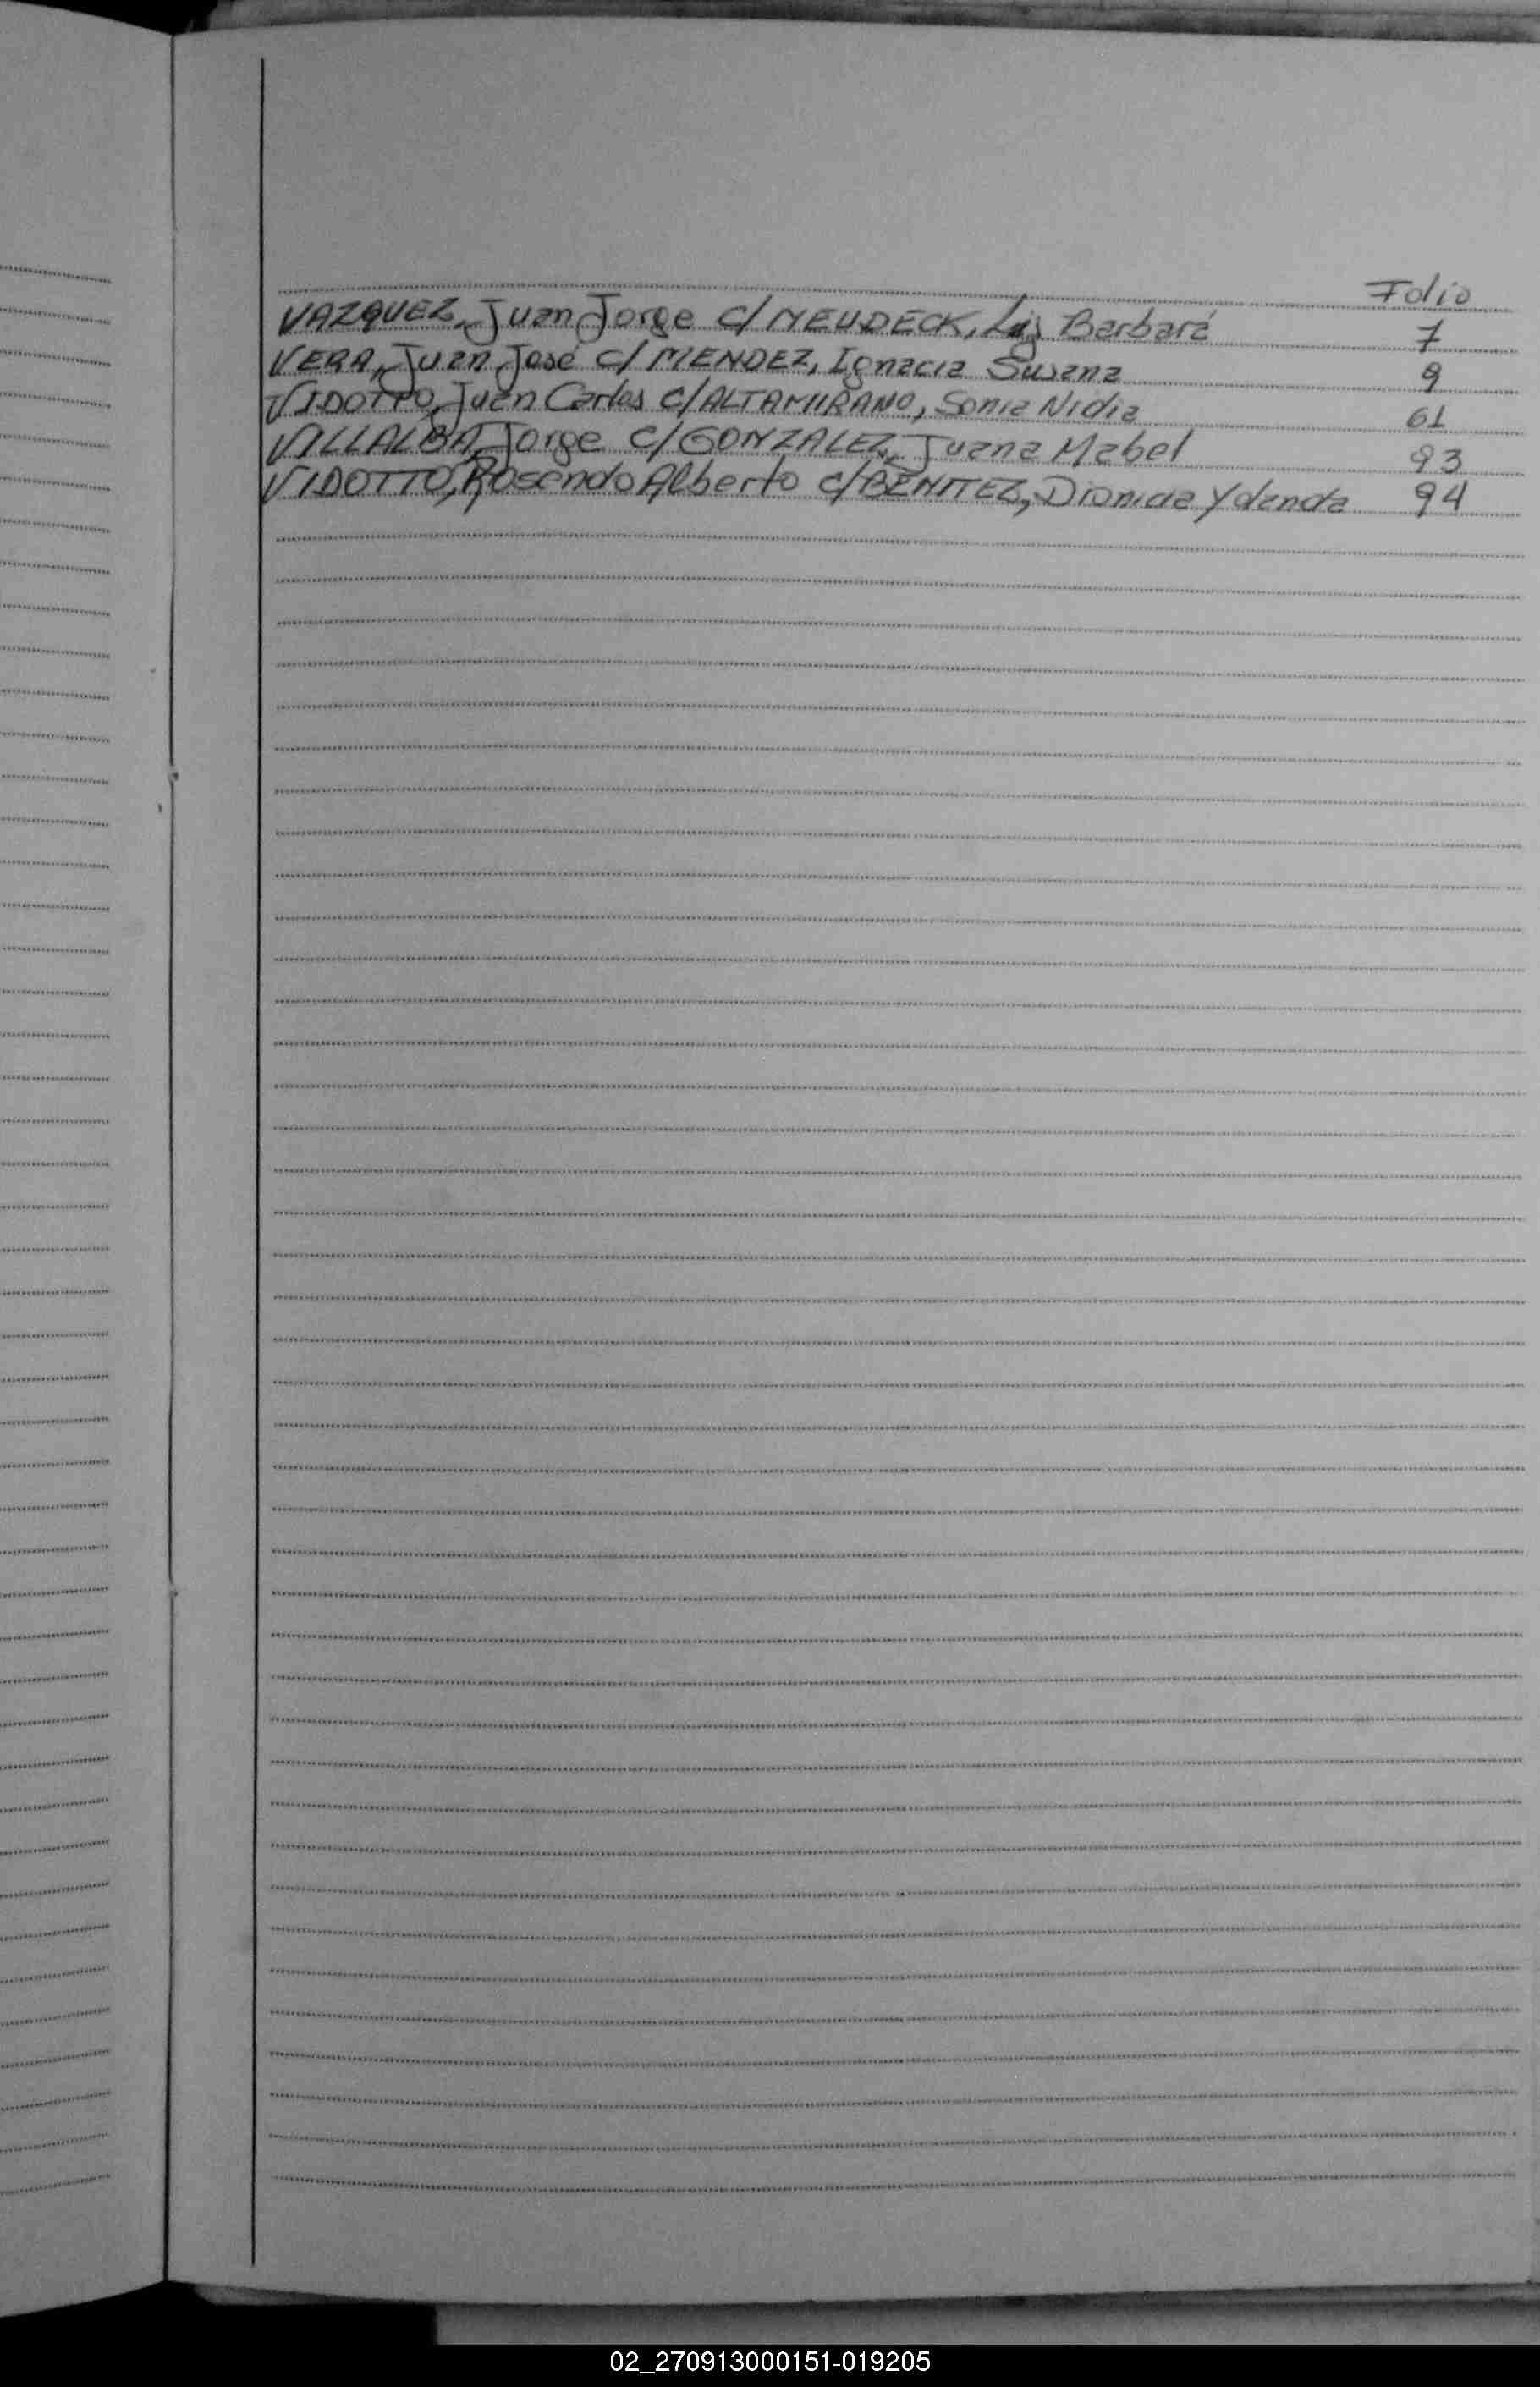 Folio
VAZQUEZ, Juan Jorge c/ NEUDECK, Barbara 7
VERA, Juan José c/ MENDEZ, Ignacia Susana 9
VIDOTTO, Juan Carlos c/ ALTAMIRANO, Sonia Nidia 61
VILLALBA, Jorge c/ GONZALEZ, Juana Mabel 93
VIDOTTO, Rosendo Alberto c/ BENITEZ, 94
02_270913000151-019205